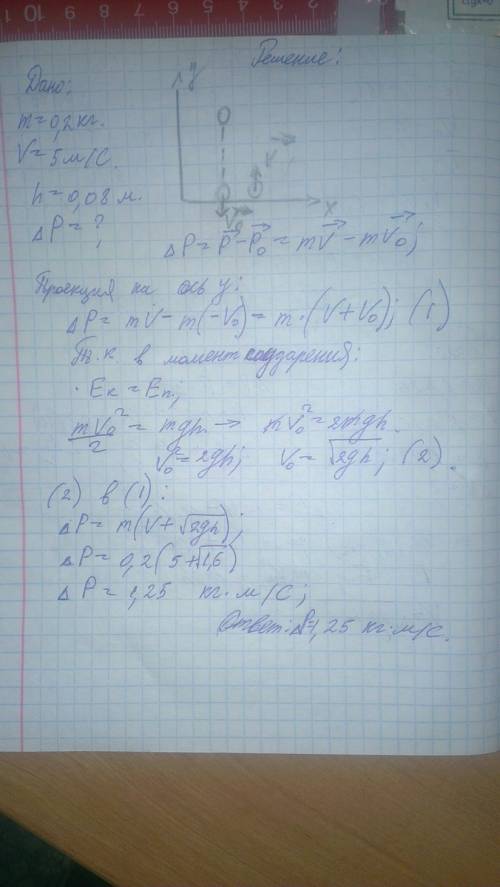 10 9 8 7 6 5 4 3 2
Решение:
Дано:
m=0,2кг.
V=5м/С.
h=0,08 м.
ΔP=?
y
V
V₀
X
ΔP=P-P₀=mV-mV₀;
Проекция на ось y:
ΔP=mV-m(-V₀)=m·(V+V₀); (1)
Т.к в момент соударения:
·Eк=Eп;
mV₀²/2=mgh→ mV₀²=2mgh.
V₀²=2gh; V₀=√2gh; (2).
(2) в (1):
ΔP=m(V+√2gh);
ΔP=0,2(5+√1,6)
ΔP=1,25 кг·м/С;
Ответ: ΔP=1,25 кг·м/С.